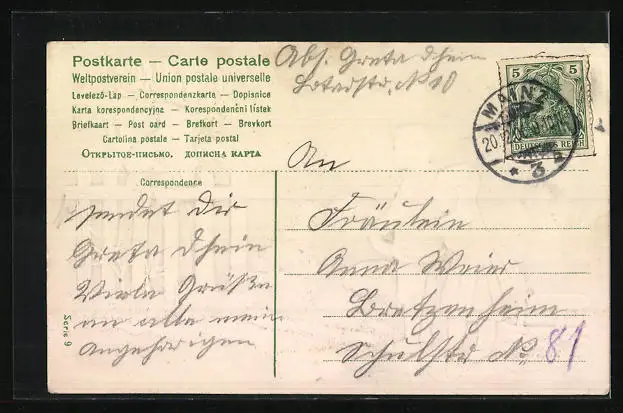 Postkarte — Carte postale
Weltpostverein — Union postale universelle
Levelező-Lap — Correspondenzkarte — Dopisnice
Karta korespondencyjna — Korespondenční lístek
Briefkaart — Post card — Brefkort — Brevkort
Cartolina postale — Tarjeta postal
Открытое-письмо, дописна карта
Abs. Greta Dhein
No 10
5 5
DEUTSCHES REICH
MAINZ
* 3
An
Correspondence
sendet dir
Greta Dhein
Viele Grüße
an alle mein
Angehörigen
Fräulein
Anna Weier
Bretzenheim
Schulstr No 81
Serie 9